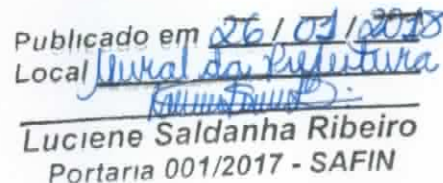 Publicado em 26 / 01 / 2018
Local Mural da Prefeitura
Luciene Saldanha Ribeiro
Portaria 001/2017 - SAFIN